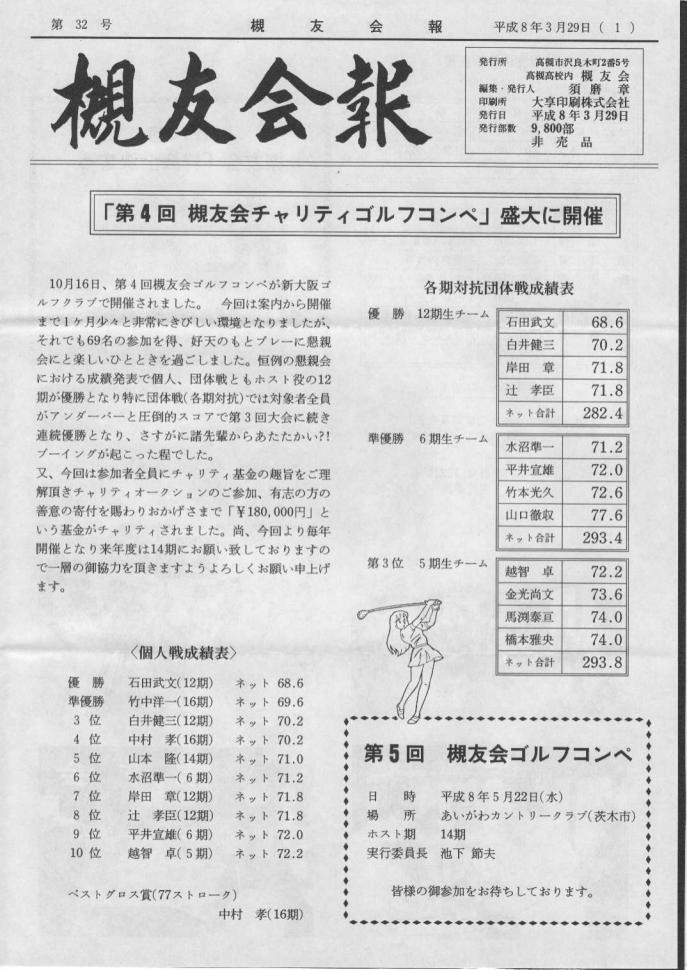 第 32 号　槻 友 会 報　平成8年3月29日（1）
槻友会報
発行所　高槻市沢良木町2番5号
高槻高校内 槻 友 会
編集・発行人　須 磨 章
印刷所　大享印刷株式会社
発行日　平成8年3月29日
発行部数　9,800部
非 売 品
「第4回 槻友会チャリティゴルフコンペ」盛大に開催
10月16日、第4回槻友会ゴルフコンペが新大阪ゴ
ルフクラブで開催されました。　今回は案内から開催
まで1ヶ月少々と非常にきびしい環境となりましたが、
それでも69名の参加を得、好天のもとプレーに懇親
会にと楽しいひとときを過ごしました。恒例の懇親会
における成績発表で個人、団体戦ともホスト役の12
期が優勝となり特に団体戦(各期対抗)では対象者全員
がアンダーパーと圧倒的スコアで第3回大会に続き
連続優勝となり、さすがに諸先輩からあたたかい?!
ブーイングが起こった程でした。
又、今回は参加者全員にチャリティ基金の趣旨をご理
解頂きチャリティオークションのご参加、有志の方の
善意の寄付を賜わりおかげさまで「￥180,000円」と
いう基金がチャリティされました。尚、今回より毎年
開催となり来年度は14期にお願い致しておりますの
で一層の御協力を頂きますようよろしくお願い申上げ
ます。
〈個人戦成績表〉
優　勝　石田武文(12期)　ネット 68.6
準優勝　竹中洋一(16期)　ネット 69.6
3　位　白井健三(12期)　ネット 70.2
4　位　中村　孝(16期)　ネット 70.2
5　位　山本　隆(14期)　ネット 71.0
6　位　水沼準一( 6 期)　ネット 71.2
7　位　岸田　章(12期)　ネット 71.8
8　位　辻　孝臣(12期)　ネット 71.8
9　位　平井宣雄( 6 期)　ネット 72.0
10　位　越智　卓( 5 期)　ネット 72.2
ベストグロス賞(77ストローク)
中村　孝(16期)
各期対抗団体戦成績表
優　勝　12期生チーム
石田武文　68.6
白井健三　70.2
岸田　章　71.8
辻　孝臣　71.8
ネット合計　282.4
準優勝　6期生チーム
水沼準一　71.2
平井宣雄　72.0
竹本光久　72.6
山口徹収　77.6
ネット合計　293.4
第3位　5期生チーム
越智　卓　72.2
金光尚文　73.6
馬渕泰亘　74.0
橋本雅央　74.0
ネット合計　293.8
第5回　槻友会ゴルフコンペ
日　時　平成8年5月22日(水)
場　所　あいがわカントリークラブ(茨木市)
ホスト期　14期
実行委員長　池下 節夫
皆様の御参加をお待ちしております。